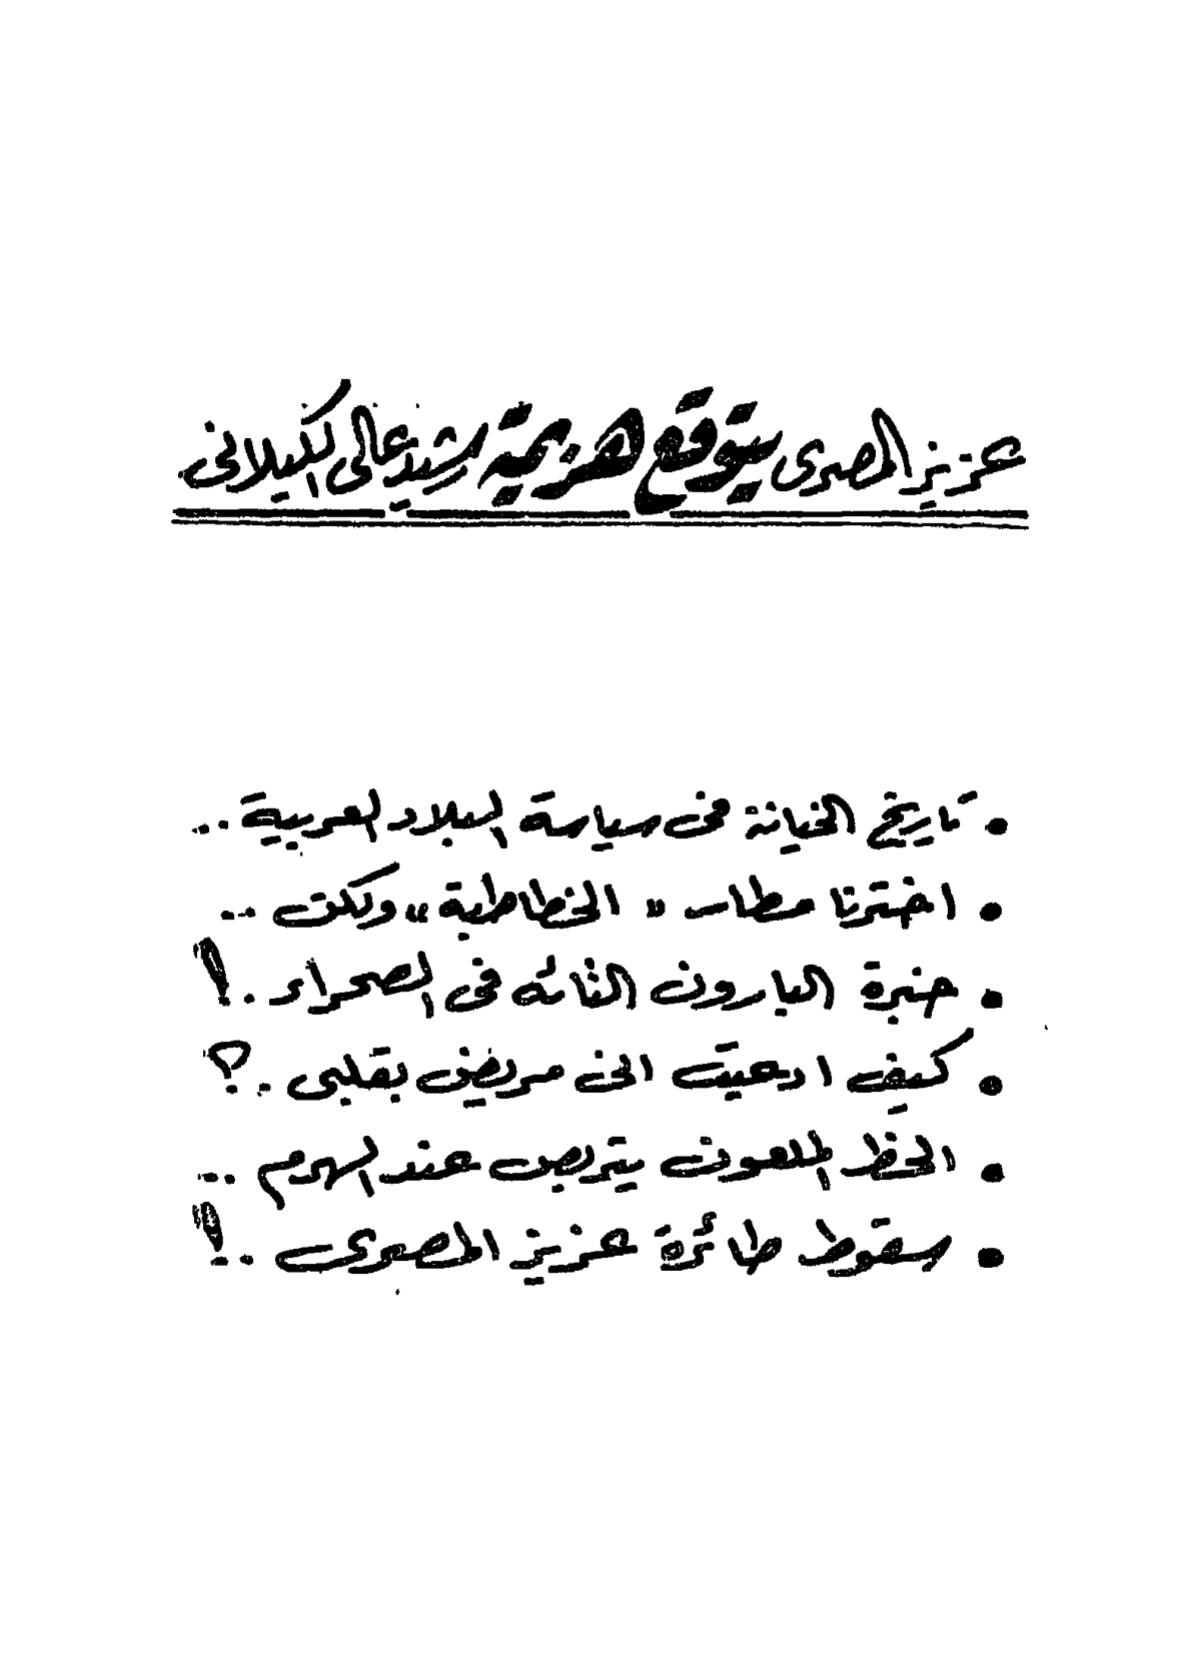 عزيز المصرى يتوقع هزيمة رشيد عالى الكيلانى
• تاريخ الخيانة فى سياسة البلاد العربية ..
• اخترنا مطار « الخطاطبة » ولكن ..
• خبرة البارون التائه فى الصحراء .!
• كيف ادعيت انى مريض بقلبى .؟
• الحظ الملعون يتربص عند الهرم ..
• سقوط طائرة عزيز المصرى .!